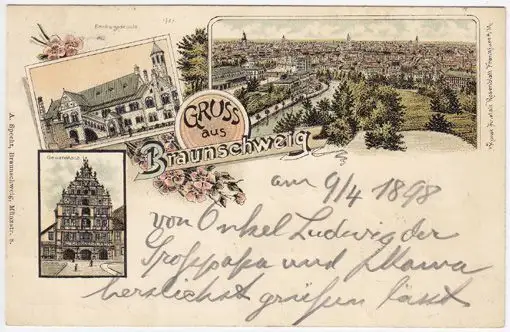 Gewandhaus
GRUSS
aus
Braunschweig
A. Specht, Braunschweig, Münzstr. 8.
am 9/4 1898
von Onkel Ludwig der
Grosspapa und Mama
herzlichst grüßen lässt